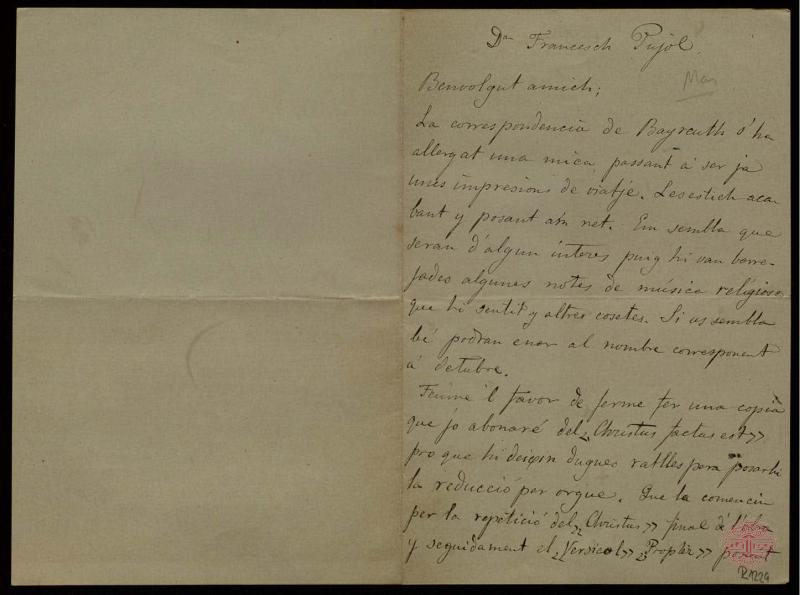 Dn Francesch Pujol
Mas
Benvolgut amich;
La correspondencia de Bayreuth s'ha
allergat una mica, passant á ser ja
unes impresions de viatje. Les estich aca-
bant y posant a'n net. Em sembla que
seran d'algun interes puig hi van barre-
jades algunes notes de música religiosa
que hi sentit y altres cosetes. Si us sembla
bé podran enar al nombre corresponent
á octubre.
Feume 'l favor de ferme fer una copia
que jo abonaré del "Christus factus est"
pro que hi deixin dugues ratlles pera posarhi
la reducció per orgue. Que la comencin
per la repetició del "Christus" final de l'obra
y seguidament el "Versicol" "Propter" posant
R1229